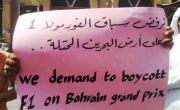 نرفض سباق الفورمولا 1
على أرض البحرين المحتلة..
we demand to boycott
F1 on Bahrain grand prix